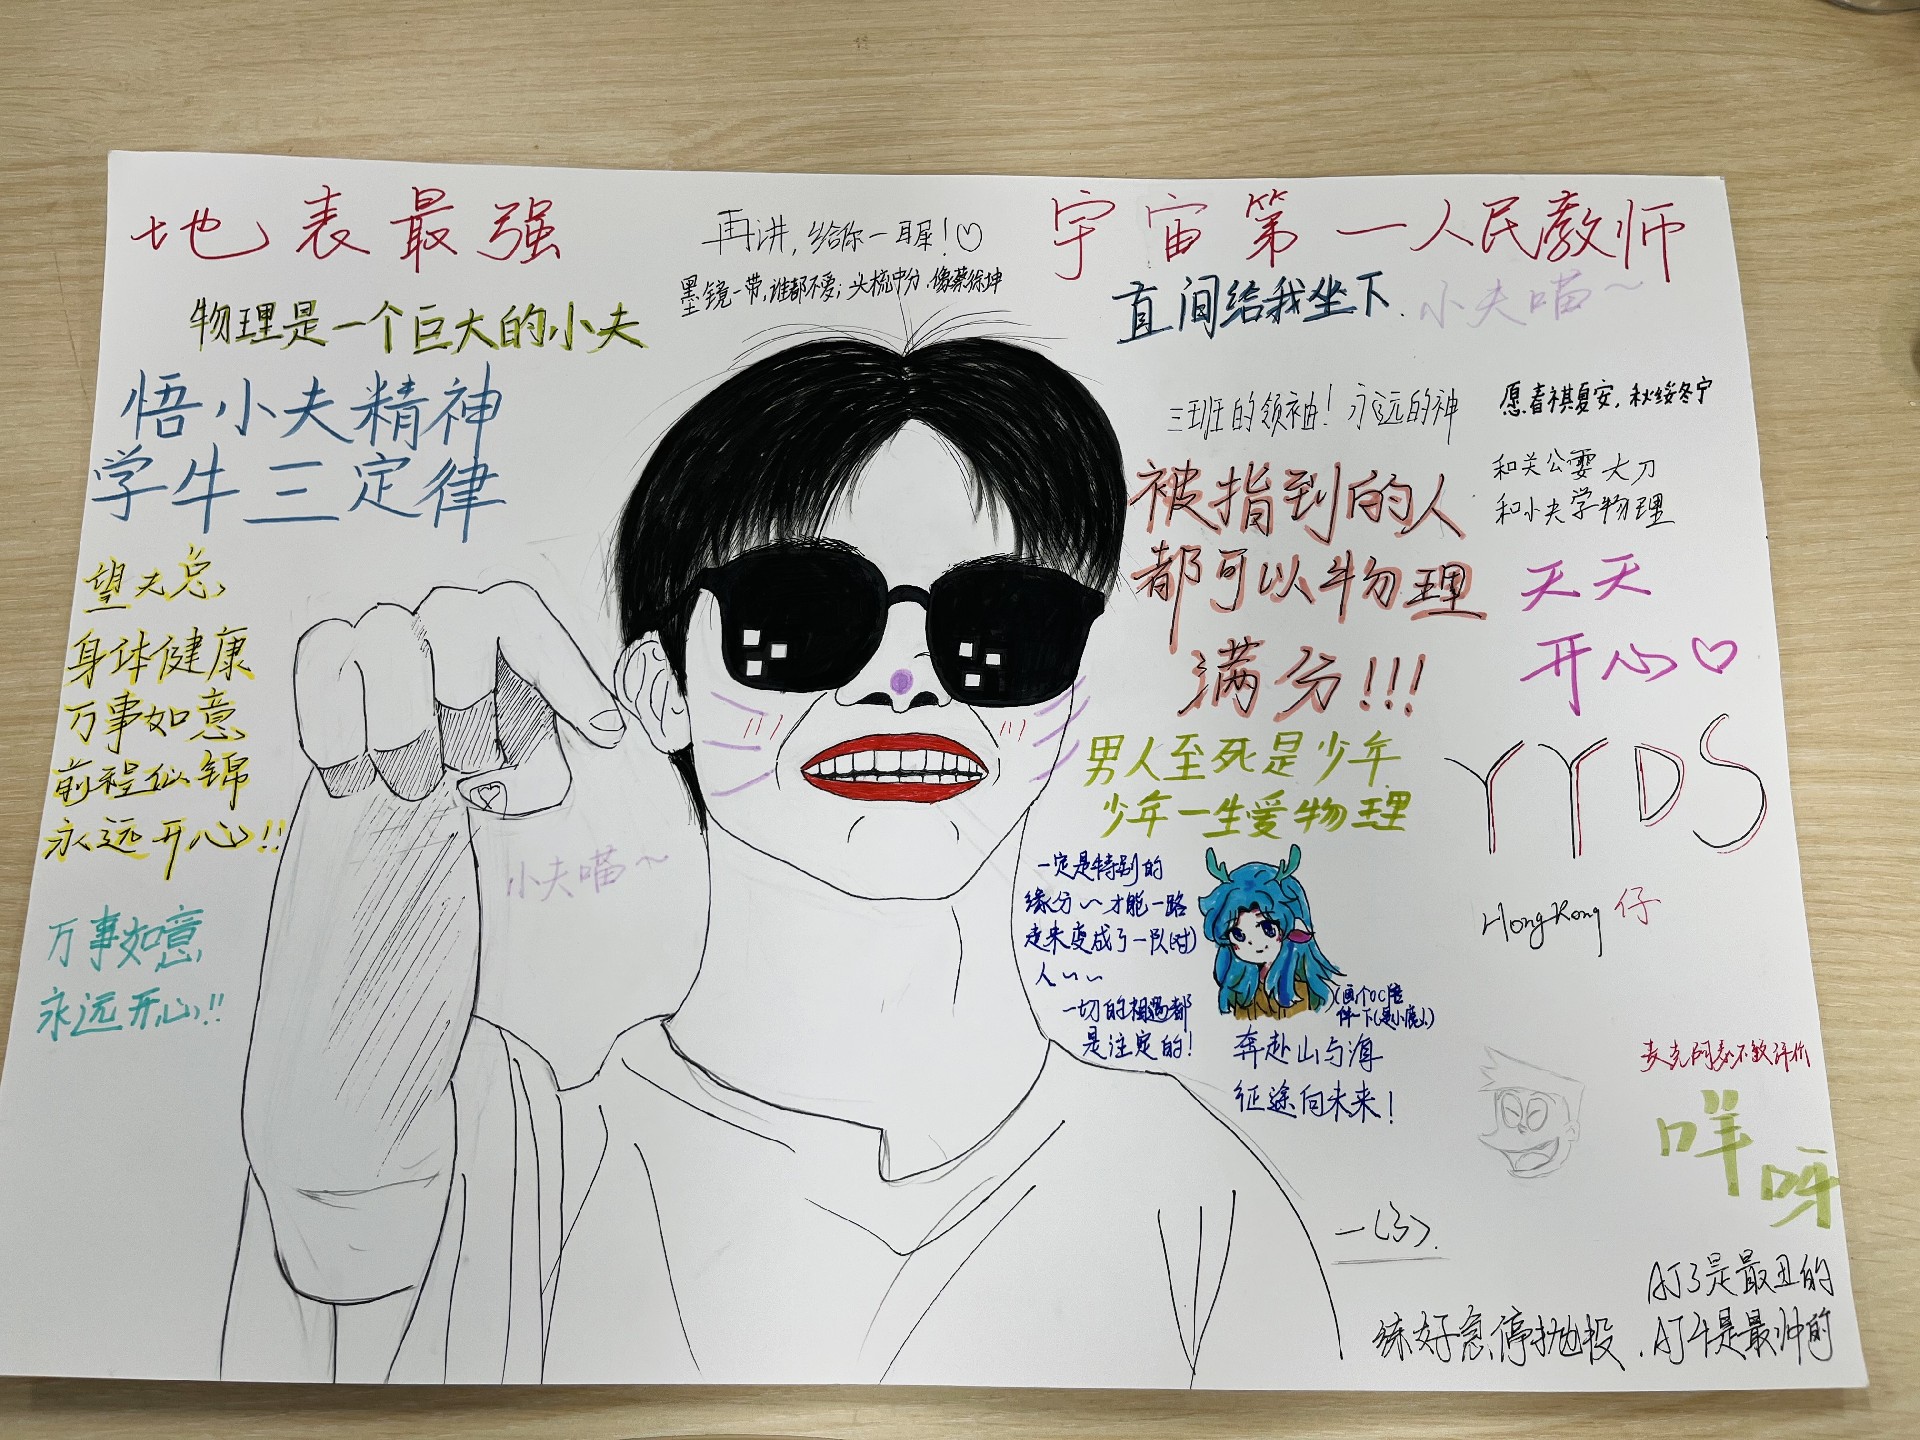 地表最强
再讲,给你一耳屎!♡
宇宙第一人民教师
墨镜一带,谁都不爱;头梳中分,像蔡徐坤
直间给我坐下.
小夫喵~
物理是一个巨大的小夫
悟小夫精神
学牛三定律
三班的领袖!永远的神
愿春祺夏安,秋绥冬宁
和关公耍大刀
和小夫学物理
被指到的人
都可以牛物理
满分!!!
天天
开心♡
身体健康
万事如意
前程似锦
永远开心!!
YYDS
男人至死是少年
少年一生爱物理
小夫喵~
一定是特别的
缘分~才能一路
走来变成了一队(对)
人~~
一切的相遇都
是注定的!
(画个OC陪
伴一下(是小鹿))
奔赴山与海
征途向未来!
HongKong仔
万事如意
永远开心!!
麦克阿瑟不敢评价
咩呀
一(3).
AJ3是最丑的
练好急停抛投.AJ4是最帅的